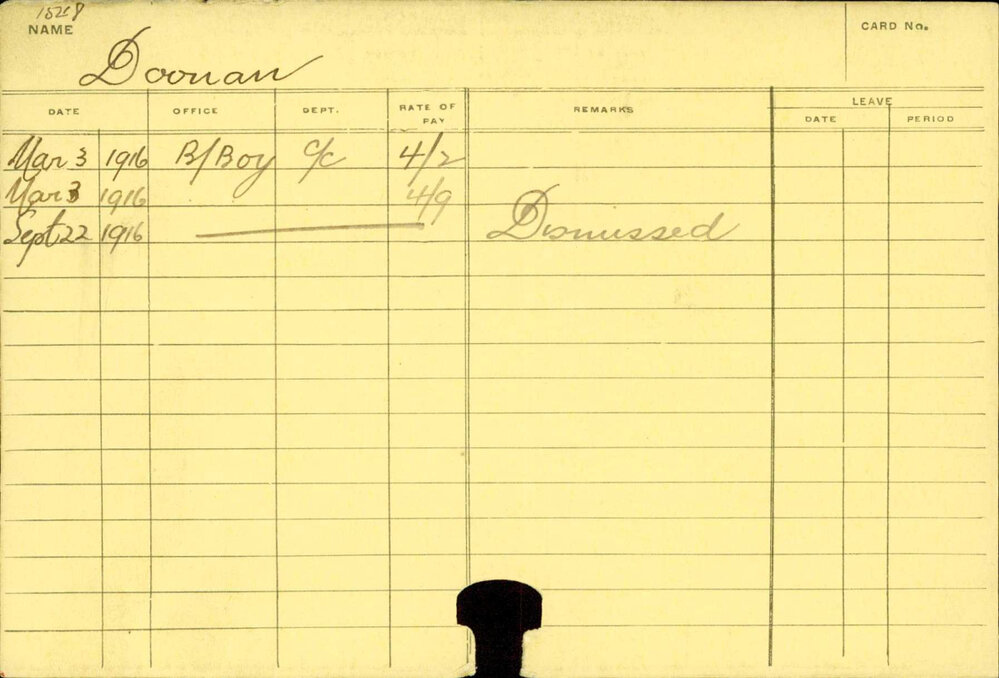 1528
NAME
CARD No.
Doonan
DATE OFFICE DEPT. RATE OF PAY REMARKS LEAVE
DATE PERIOD
Mar 3 1916 B/Boy c/c 4/2
Mar 3 1916 4/9
Sept 22 1916 Dismissed